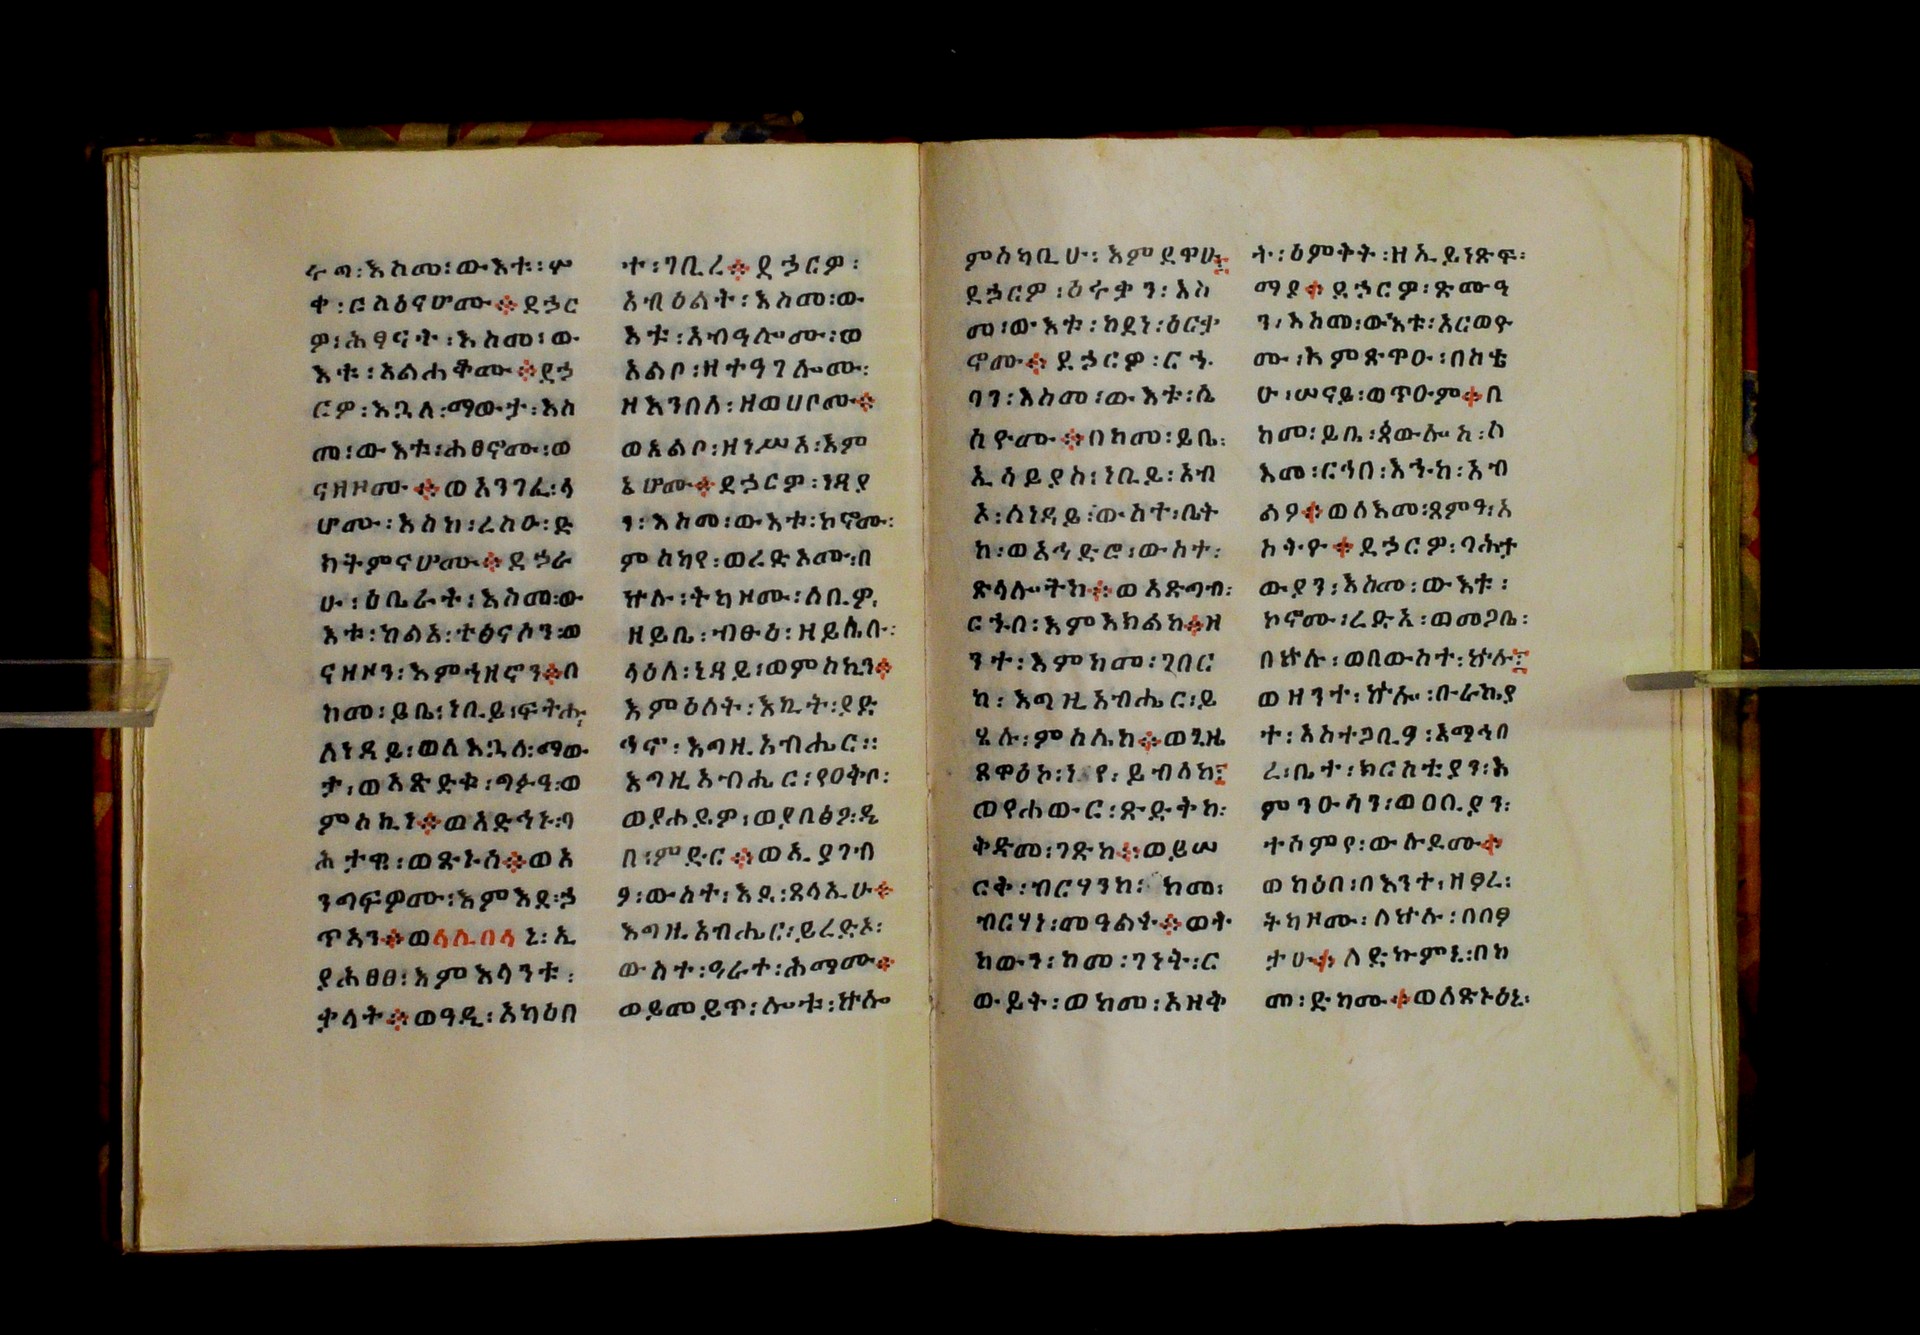 ራጣ፡እስመ፡ውእቱ፡ሦ
ቀ፡ርስዕናሆሙ፨ደኃር
ዎ፡ሕፃናት፡እስመ፡ው
እቱ፡አልሐቆሙ፨ደኃ
ርዎ፡እጓለ፡ማውታ፡እስ
መ፡ውእቱ፡ሐፀኖሙ፡ወ
ናዘዞሙ፨ወአንገፈ፡ላ
ሆሙ፡እስከ፡ረስዑ፡ድ
ክትምናሆሙ፨ደኃራ
ሁ፡ዕቤራት፡እስመ፡ው
እቱ፡ከልአ፡ተፅናሶን፡ወ
ናዘዞን፡እምኀዘኖን፨በ
ከመ፡ይቤ፡ነቢይ፡ፍትሑ፡
ለነዳይ፡ወለእጓለ፡ማው
ታ፡ወአጽድቁ፡ግፉዓ፡ወ
ምስኪነ፨ወአድኅኑ፡ባ
ሕታዌ፡ወጽኑስ፨ወአ
ንግፍዎሙ፡እምእደ፡ኃ
ጥአን፨ወላሊበላኒ፡ኢ
ያሕፀፀ፡እምእላንቱ፡
ቃላት፨ወዓዲ፡አካዕበ
ተ፡ገቢረ፨ደኃርዎ፡
አብዕልት፡እስመ፡ው
እቱ፡አብዓሎሙ፡ወ
አልቦ፡ዘተዓገሎሙ፡
ዘእንበለ፡ዘወሀቦሙ፨
ወአልቦ፡ዘነሥአ፡እም
ኔሆሙ፨ደኃርዎ፡ነዳያ
ን፡እስመ፡ውእቱ፡ኮኖሙ፡
ምስካየ፡ወረድኦሙ፡በ
ኵሉ፡ትካዞሙ፡ለቢዎ፡
ዘይቤ፡ብፁዕ፡ዘይሌቡ፡
ላዕለ፡ነዳይ፡ወምስኪን፨
እምዕለት፡እኪት፡ያድ
ኅኖ፡እግዚአብሔር።
እግዚአብሔር፡የዐቅቦ፡
ወያሐይዎ፡ወያበፅዖ፡ዲ
በ፡ምድር፨ወኢያገብ
ዖ፡ውስተ፡እደ፡ጸላኢሁ፨
እግዚአብሔር፡ይረድኦ፡
ውስተ፡ዓራተ፡ሕማሙ፨
ወይመይጥ፡ሎቱ፡ኵሎ
ምስካቢሁ፡እምደዌሁ፨
ደኃርዎ፡ዕራቃን፡እስ
መ፡ውእቱ፡ከደነ፡ዕርቃ
ኖሙ፨ደኃርዎ፡ርኁ
ባን፡እስመ፡ውእቱ፡ሴ
ሰዮሙ፨በከመ፡ይቤ፡
ኢሳይያስ፡ነቢይ፡አብ
እ፡ለነዳይ፡ውስተ፡ቤት
ከ፡ወአኅድሮ፡ውስተ፡
ጽላሎትከ፨ወአጽግብ፡
ርኁበ፡እምእክልከ፨ዘ
ንተ፡እምከመ፡ገበር
ከ፡እግዚአብሔር፡ይ
ሄሉ፡ምስሌከ፨ወጊዜ
ጸዋዕኮ፡ነየ፡ይብለከ፨
ወየሐውር፡ጽድቅከ፡
ቅድመ፡ገጽከ፨ወይሠ
ርቅ፡ብርሃንከ፡ከመ፡
ብርሃነ፡መዓልት፨ወት
ከውን፡ከመ፡ገነት፡ር
ውይት፡ወከመ፡አዘቅ
ት፡ዕምቅት፡ዘኢይነጽፍ፡
ማያ፨ደኃርዎ፡ጽሙዓ
ን፡እስመ፡ውእቱ፡አርወዮ
ሙ፡እምጽዋዑ፡በስቴ
ሁ፡ሠናይ፡ወጥዑም፨በ
ከመ፡ይቤ፡ጳውሎስ፡ሶ
እመ፡ርኅበ፡እንከ፡አብ
ልዖ፨ወለእመ፡ጸምዓ፡አ
ስትዮ፨ደኃርዎ፡ባሕታ
ውያን፡እስመ፡ውእቱ፡
ኮኖሙ፡ረድኤ፡ወመጋቤ፡
በኵሉ፡ወበውስተ፡ኵሉ፨
ወዘንተ፡ኵሎ፡በራኪያ
ተ፡አስተጋቢዓ፡አማኅበ
ረ፡ቤተ፡ክርስቲያን፡እ
ምንዑሳን፡ወዐቢያን፡
ተሰምየ፡ውሉደሙ፨
ወከዕበ፡በእንተ፡ዘፆረ፡
ትካዞሙ፡ለኵሉ፡በበፆ
ታሁ፨ለድኩምኒ፡በከ
መ፡ድካሙ፨ወለጽኑዕኒ፡